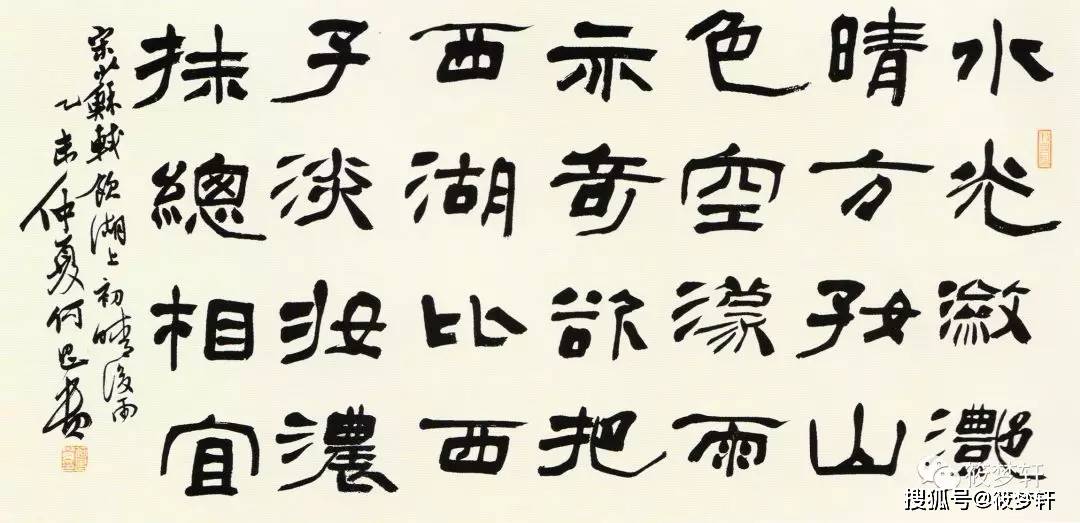 水光瀲灩
晴方好山
色空濛雨
亦奇欲把
西湖比西
子淡妝濃
抹總相宜
宋蘇軾飲湖上初晴後雨
乙未仲夏何
筱梦轩
搜狐号@筱梦轩